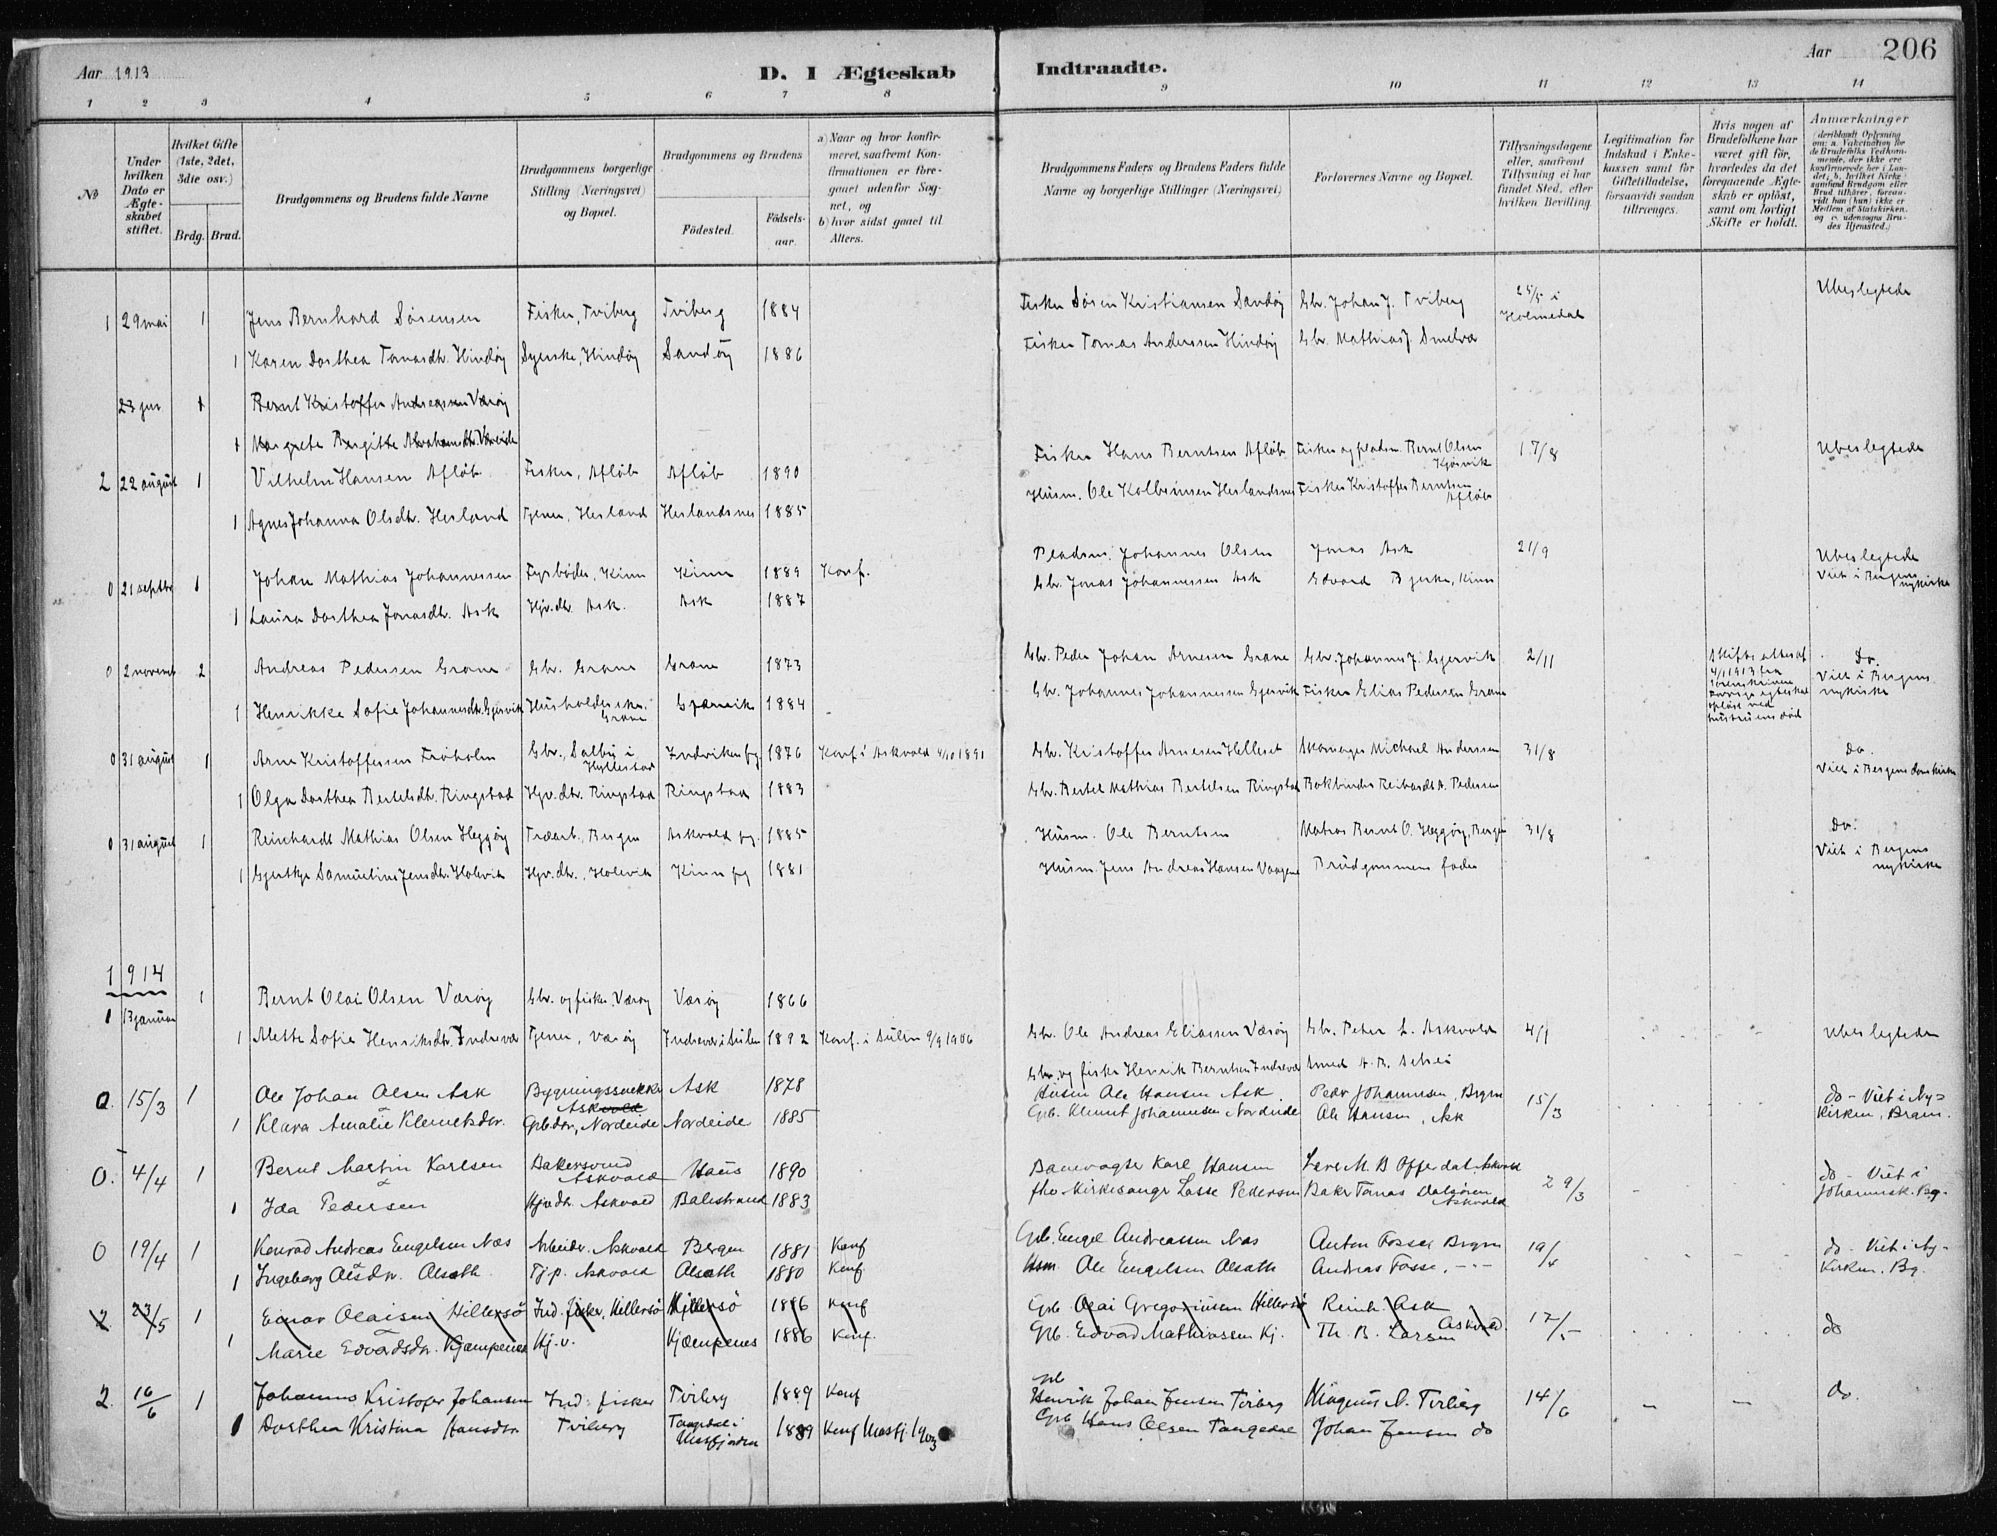 Aar 1913
D. I Ægteskab Indtraadte.
Aar 206
1 2 3 4 5 6 7 8 9 10 11 12 13 14
No
Under hvilken Dato er Ægteskabet stiftet.
Hvilket Gifte (1ste, 2det, 3die osv.)
Brdg. Brud.
Brudgommens og Brudens fulde Navne
Brudgommens borgerlige Stilling (Næringsvei) og Bopæl.
Brudgommens og Brudens
Fødested.
Fødselsaar.
a) Naar og hvor konfirmeret, saafremt Konfirmationen er foregaaet udenfor Sognet, og
b) hvor sidst gaaet til Alters.
Brudgommens Faders og Brudens Faders fulde Navne og borgerlige Stillinger (Næringsvei)
Forlovernes Navne og Bopæl.
Tillysningsdagene eller, saafremt Tillysning ei har fundet Sted, efter hvilken Bevilling.
Legitimation for Indskud i Enkekassen samt for Giftetilladelse, forsaavidt saadan tiltrænges.
Hvis nogen af Brudefolkene har været gift før, hvorledes da det foregaaende Ægteskab er opløst, samt om lovligt Skifte er holdt.
Anmærkninger (deriblandt Oplysning om: a. Vaksination for de Brudefolks Vedkommende, der ikke ere konfirmerede her i Landet, b. hvilket Kirkesamfund Brudgom eller Brud tilhører, forsaavidt han (hun) ikke er Medlem af Statskirken, og c. udensogns Brudes Hjemsted.)
1 29 mai 1 Jens Bernhard Sörensen Fisker, Tviberg Tviberg 1884 Fisker Sören Kristiansen Sandöy Gbr. Johan J. Tviberg 25/5 i Holmedal Ubeslegtede
1 Karen Dorthea Tomasdtr. Hindöy Syerske, Hindöy Sandöy 1886 Fisker Tomas Anderssen Hindöy Gbr. Mathias J. Smelvær
23 jun 1 Bernt Kristoffer Andreassen Værøy
1 Margrete Birgitte Abrahamsdtr. Værøy
2 22 august 1 Vilhelm Hansen Aflöb Fisker, Aflöb Aflöb 1890 Fisker Hans Berntsen Aflöb Fisker og pladsm. Bernt Olsen Kjösvik 17/8 Ubeslegtede
1 Agnes Johanna Olsdtr. Hesland Tjener, Hesland Heslandsnes 1885 Husm. Ole Kolbeinsen Heslandsnes Fisker Kristoffer Berntsen Aflöb
0 21 septbr 1 Johan Mathias Johannessen Fyrböder, Kinn Kinn 1889 Konf. Pladsm. Johannes Olsen Jonas Ask 21/9 Ubeslegtede Viet i Bergens nykirke
1 Laura Dorthea Jonasdtr. Ask Hjv. dtr. Ask. Ask 1887 Gbr. Jonas Johannessen Ask Edvard Bjerke, Kinn
0 2 novemb 2 Andreas Pedersen Grane Gbr. Grane Grane 1873 Gbr. Peder Johan Arnesen Grane Gbr. Johannes J. Gjervik 2/11 Skifteattest af 4/1 1913 fra sorenskriveren Forrige egteskab oplöst ved hustruens död Do. Viet i Bergens nykirke
1 Henrikke Sofie Johannesdtr. Gjervik Husholderske, Grane Gjærvik 1884 Gbr. Johannes Johannessen Gjervik Fisker Elias Pedersen Grane
0 31 august 1 Arne Kristoffersen Fröholm Gbr., Salbu i Hyllestad Indviken pg. 1876 Konf. i Askvold 4/10 1891 Gbr. Kristoffer Arnesen Helleset Skomager Michael Anderssen 31/8 do. Viet i Bergens domkirke
1 Olga Dorthea Bertelsdtr. Ringstad Hjv. dtr. Ringstad Ringstad 1883 Gbr. Bertel Mathias Bertelsen Ringstad Bokbinder Reihardt A. Pedersen
0 31 august 1 Reinhardt Mathias Olsen Heggöy Træarb., Bergen Askvold pg. 1885 Husm. Ole Berntsen Matros Bernt O. Heggöy, Bergen 31/8 do. Viet i Bergens nykirke
1 Gjertkje Samueline Jensdtr. Holevik Hjv. dtr., Holevik Kinn pg 1881 Husm. Jens Andreas Hansen Vaagene Brudgommens fader
1914
1 13 januar 1 Bernt Olai Olsen Værøy Gbr. og fisker, Værøy Værøy 1866 Gbr. Ole Andreas Eliassen Værøy Gbr. Peter L. Askvold 4/1 Ubeslegtede
1 Mette Sofie Henriksdtr. Indrevær Tjener, Værøy Indrevær i Sulen 1892 Konf. i Sulen 9/9 1906 Gbr. og fisker Henrik Berntsen Indrevær Smed A. B. Schei
0. 15/3 1 Ole Johan Olsen Ask Bygningssnekker Askvold Ask 1878 Husm Ole Hansen Ask Peder Johannesen, Brgn 15/3 do - Viet i Ny=kirken, Brgn.
1 Klara Amalie Klemetsdtr. Gbr.dtr., Nordeide Nordeide 1885 Gbr. Klemet Johannesen Nordeide Ole Hansen, Ask
0. 4/4 1 Bernt Martin Karlsen Bakersvend Askvold Haus 1890 Banevogter Karl Hansen Lars M. B Offerdal Askvold 29/3 do - Viet i Johannesk. Bg.
1 Ida Pedersen Hjv. dtr. Askvold Balestrand 1883 fhv. Kirkesangr Lasse Pedersen Baker Tomas Dalsören Askvold
0 19/4 1 Konrad Andreas Engelsen Næs Arbeider, Askvold Bergen 1881 Konf Gbr. Engel Andreassen Næs Anton Fosse Brgn 19/4 do - Viet i Ny-kirken. Bg.
1 Ingeborg Olsdtr. Alsath Tj.p. Askvold Alsath 1880 Konf Hsm. Ole Engelsen Alsath Andreas Fosse, -"-
2 23/5 1 Einar Olaisen Hillersö Ind. fisker, Hillersö Hillersö 1886 Konf Gbr. Olai Gregoriusen Hillersö Reinh. Ask Askvold 17/5 do
1 Marie Edvardsdtr. Kjæmpenes Hj.v. Kjæmpenes 1886 Konf. Gbr. Edvard Mathiassen Kj. Th. B. Larsen
2. 16/6 1 Johannes Kristofer Johansen Ind: fisker Tviberg 1889 Konf Gb Henrik Johan Jensen Tviberg Magnus A. Tviberg 14/6 do.
1 Dorthea Kristina Hansdtr Tviberg Tangedal i Vestfjorden 1889 Konf Vestfj. 1903 Gbr Hans Olsen Tangedal Johan Jensen do